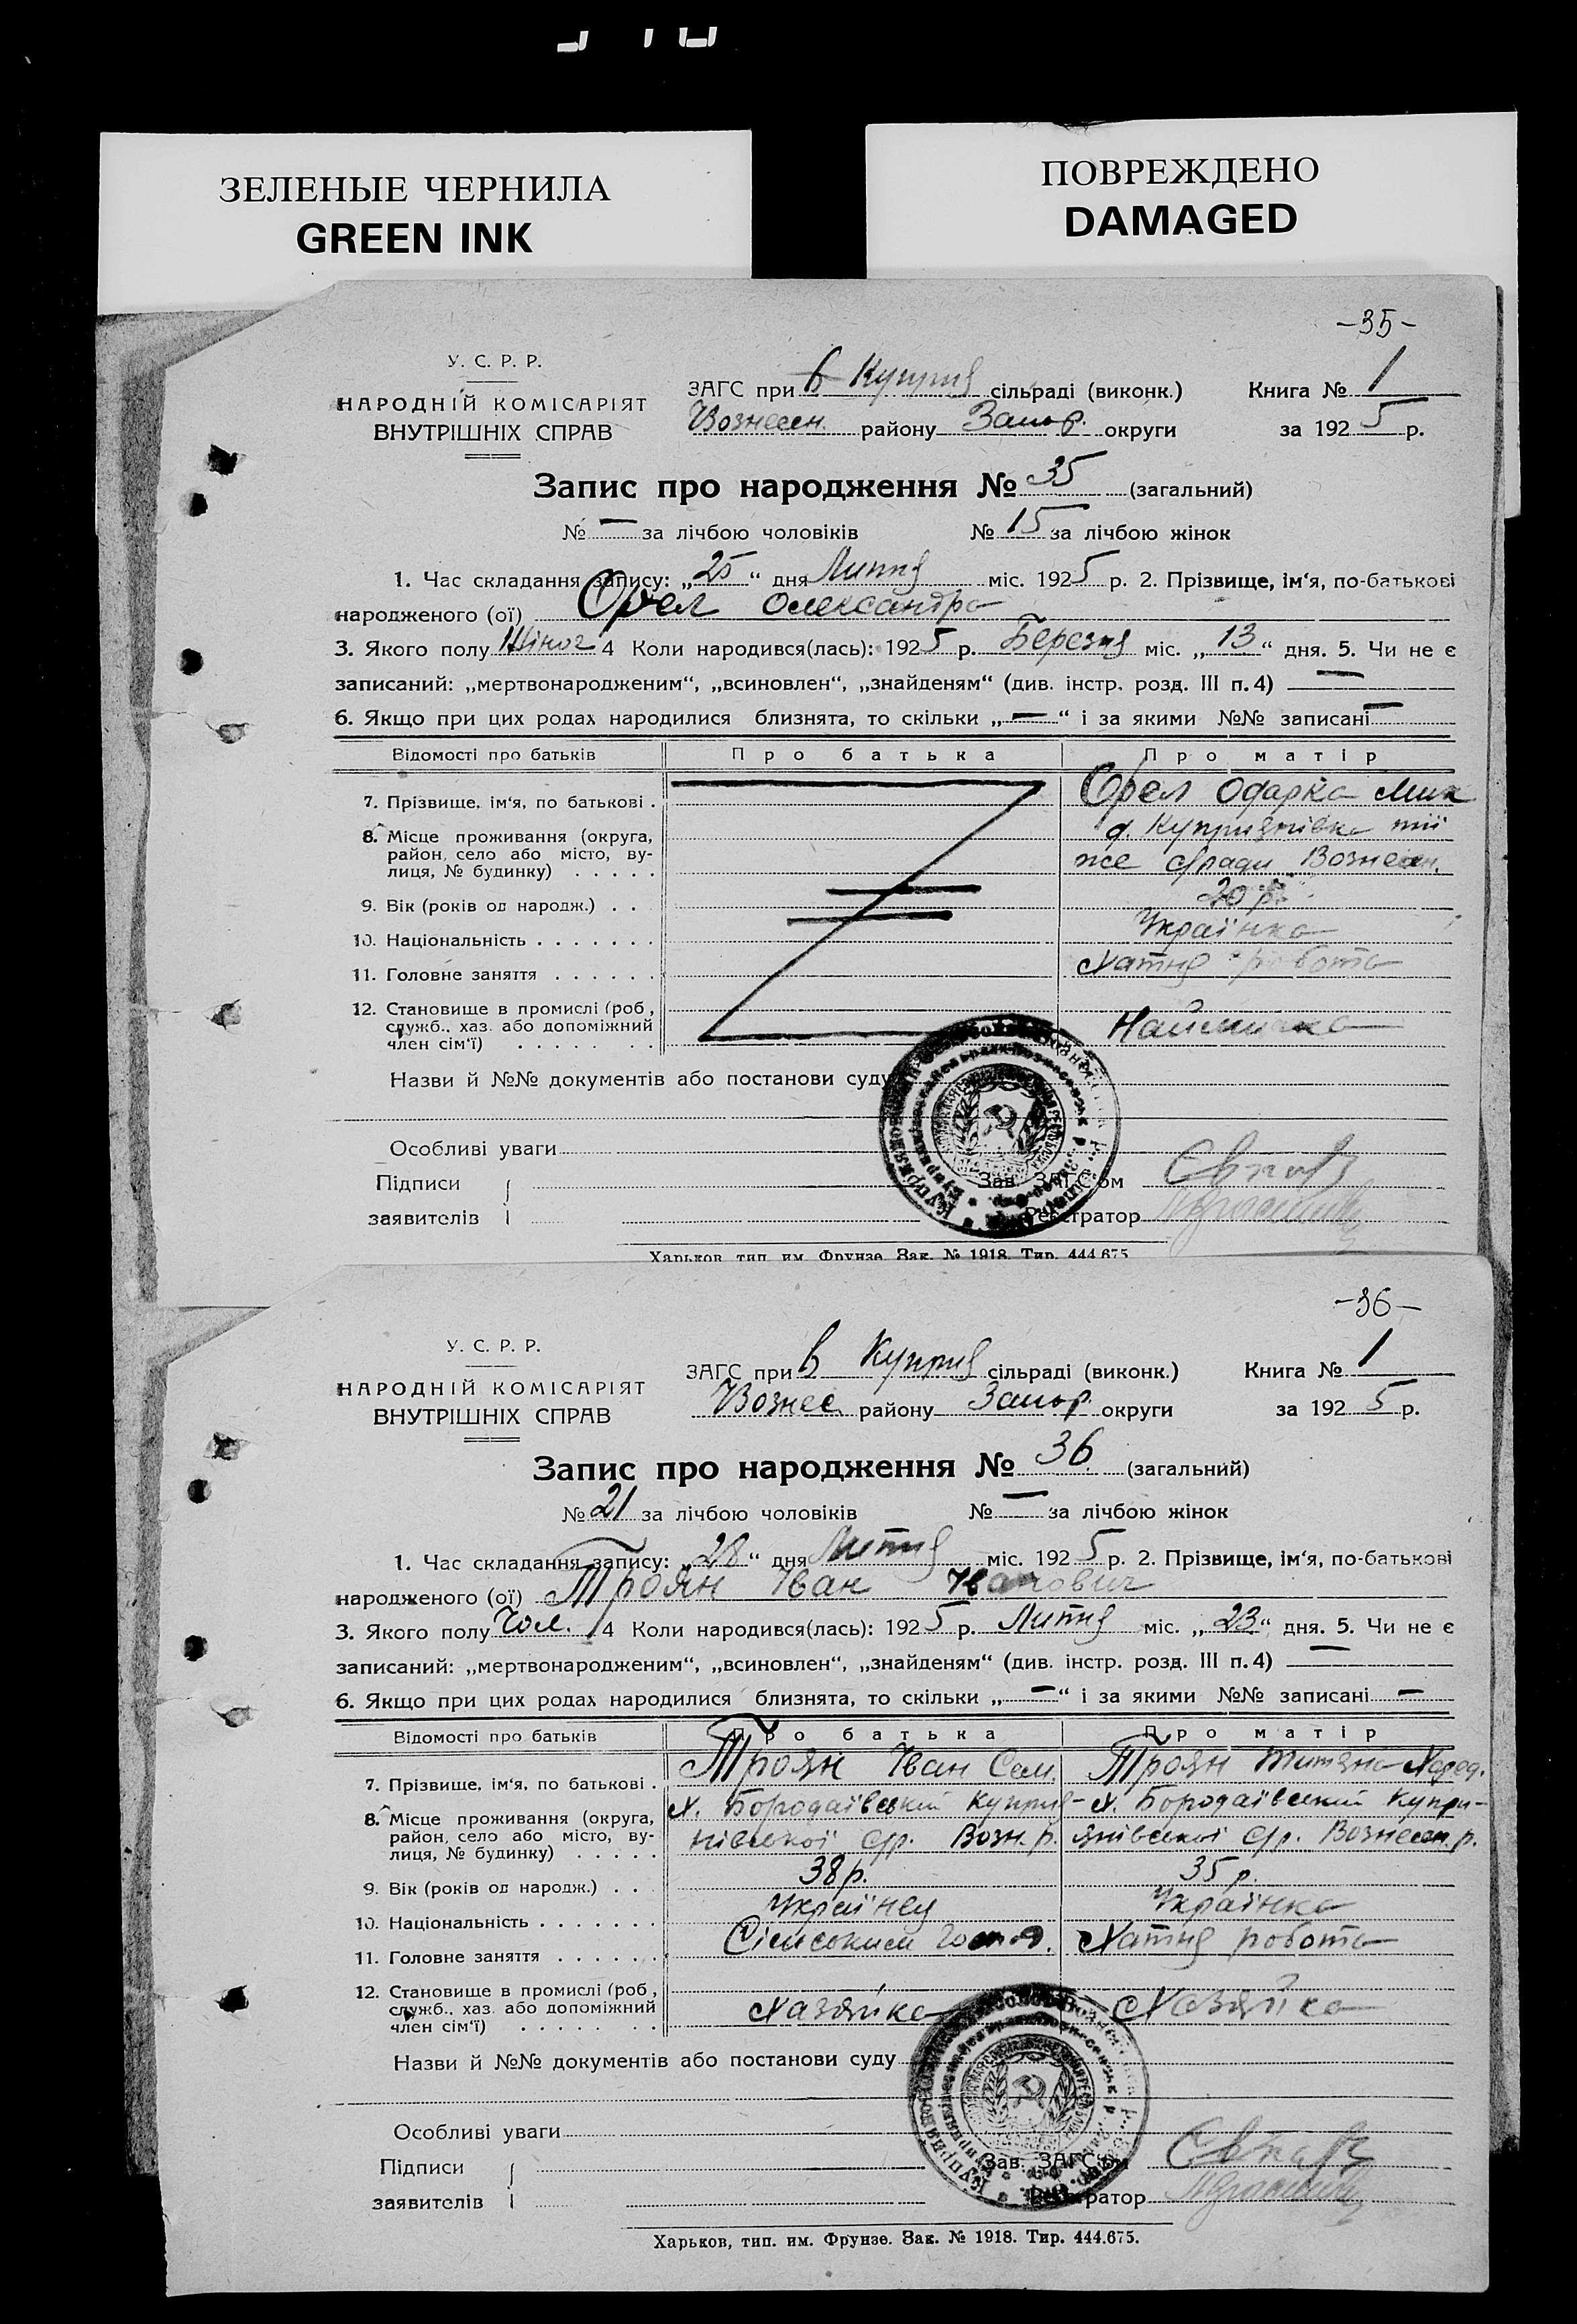 ЗЕЛЕНЫЕ ЧЕРНИЛА
GREEN INK
ПОВРЕЖДЕНО
DAMAGED
-35-
У. С. Р. Р.
НАРОДНІЙ КОМІСАРІЯТ
ВНУТРІШНІХ СПРАВ
ЗАГС при в Куприя сільраді (виконк.) Книга № 1
Вознесен. району Запор. округи за 1925 р.
Запис про народження № 35 (загальний)
№ — за лічбою чоловіків № 15 за лічбою жінок
1. Час складання запису: „25“ дня Липня міс. 1925 р. 2. Прізвище, ім‘я, по-батькові
народженого (ої) Орел Олександра
3. Якого полу Жіноч 4 Коли народився(лась): 1925 р. Березня міс. „13“ дня. 5. Чи не є
записаний: „мертвонародженим“, „всиновлен“, „знайденям“ (див. інстр. розд. III п. 4) —
6. Якщо при цих родах народилися близнята, то скільки „—“ і за якими №№ записані —
Відомості про батьків Про батька Про матір
7. Прізвище, ім‘я, по батькові . Орел Одарка Мик
8. Місце проживання (округа, д. Куприянівка тії
район, село або місто, ву- же с/ради Вознесен.
лиця, № будинку) . . . . .
9. Вік (років од народж.) . . 20 р.
10. Національність . . . . . . . Українка
11. Головне заняття . . . . . . Хатня робота
12. Становище в промислі (роб.,
служб., хаз. або допоміжний Наймичка
член сім‘ї) . . . . . . .
Назви й №№ документів або постанови суду
Особливі уваги
Підписи Зав. ЗАГС‘ом
заявителів Реєстратор
Харьков, тип. им. Фрунзе. Зак. № 1918. Тир. 444.675
-36-
У. С. Р. Р.
НАРОДНІЙ КОМІСАРІЯТ
ВНУТРІШНІХ СПРАВ
ЗАГС при в Куприя сільраді (виконк.) Книга № 1
Вознес району Запор. округи за 1925 р.
Запис про народження № 36 (загальний)
№ 21 за лічбою чоловіків № — за лічбою жінок
1. Час складання запису: „28“ дня Липня міс. 1925 р. 2. Прізвище, ім‘я, по-батькові
народженого (ої) Троян Іван Іванович
3. Якого полу Чол. 4 Коли народився(лась): 1925 р. Липня міс. „23“ дня. 5. Чи не є
записаний: „мертвонародженим“, „всиновлен“, „знайденям“ (див. інстр. розд. III п. 4) —
6. Якщо при цих родах народилися близнята, то скільки „—“ і за якими №№ записані —
Відомості про батьків Про батька Про матір
7. Прізвище, ім‘я, по батькові . Троян Іван Сем. Троян Титяна
8. Місце проживання (округа, х. Бородаївський Куприя- х. Бородаївський Купри-
район, село або місто, ву- нівської с/р. Возн. р. янівської с/р. Вознесен. р.
лиця, № будинку) . . . . .
9. Вік (років од народж.) . . 38 р. 35 р.
10. Національність . . . . . . . Українец Українка
11. Головне заняття . . . . . . Хатня робота
12. Становище в промислі (роб.,
служб., хаз. або допоміжний Хазяйка Хазяйка
член сім‘ї) . . . . . . .
Назви й №№ документів або постанови суду
Особливі уваги
Підписи Зав. ЗАГС‘ом
заявителів Реєстратор
Харьков, тип. им. Фрунзе. Зак. № 1918. Тир. 444.675.